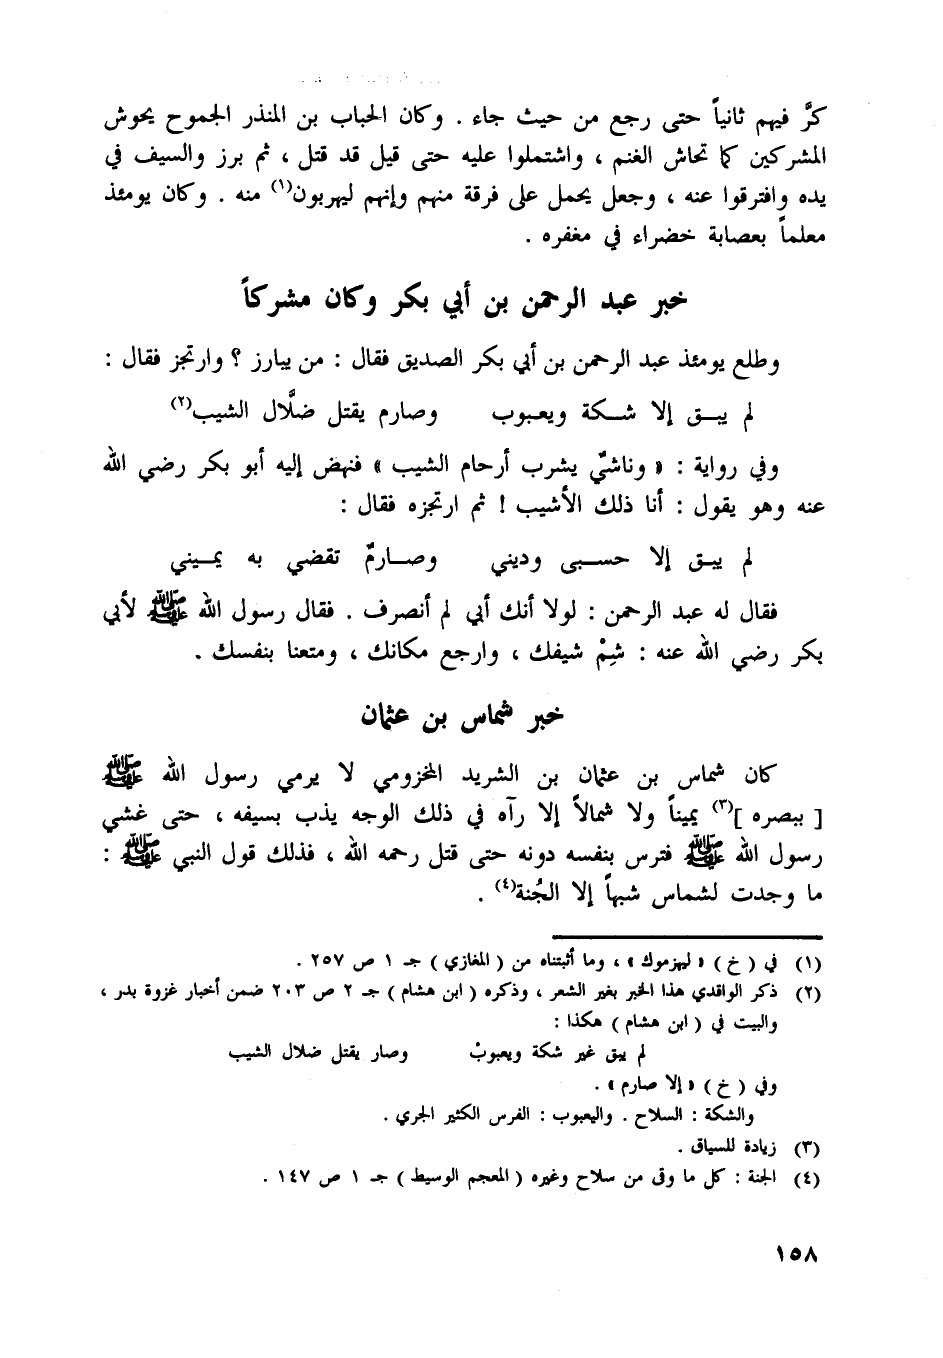 كرَّ فيهم ثانياً حتى رجع من حيث جاء . وكان الحباب بن المنذر الجموح يحوش
المشركين كما تحاش الغنم ، واشتملوا عليه حتى قيل قد قتل ، ثم برز والسيف في
يده وافترقوا عنه ، وجعل يحمل على فرقة منهم وإنهم ليهربون(١) منه . وكان يومئذ
معلماً بعصابة خضراء في مغفره .
خبر عبد الرحمن بن أبي بكر وكان مشركاً
وطلع يومئذ عبد الرحمن بن أبي بكر الصديق فقال : من يبارز ؟ وارتجز فقال :
لم يبـق إلا شـكة ويعبوب وصارم يقتل ضلَّال الشيب(٢)
وفي رواية : « وناشئٌ يشرب أرحام الشيب » فنهض إليه أبو بكر رضي الله
عنه وهو يقول : أنا ذلك الأشيب ! ثم ارتجزه فقال :
لم يبـق إلا حسـبى وديني وصـارمٌ تقضي به يمـيني
فقال له عبد الرحمن : لولا أنك أبي لم أنصرف . فقال رسول الله ﷺ لأبي
بكر رضي الله عنه : شِمْ شيفك ، وارجع مكانك ، ومتعنا بنفسك .
خبر شماس بن عثمان
كان شماس بن عثمان بن الشريد المخزومي لا يرمي رسول الله ﷺ
[ ببصره ](٣) يميناً ولا شمالاً إلا رآه في ذلك الوجه يذب بسيفه ، حتى غشي
رسول الله ﷺ فترس بنفسه دونه حتى قتل رحمه الله ، فذلك قول النبي ﷺ :
ما وجدت لشماس شبهاً إلا الجُنة(٤) .
(١) في ( خ ) « ليهزموك » ، وما أثبتناه من ( المغازي ) جـ ١ ص ٢٥٧ .
(٢) ذكر الواقدي هذا الخبر بغير الشعر ، وذكره ( ابن هشام ) جـ ٢ ص ٢٠٣ ضمن أخبار غزوة بدر ،
والبيت في ( ابن هشام ) هكذا :
لم يبق غير شكة ويعبوبْ وصار يقتل ضلال الشيب
وفي ( خ ) « إلا صارم » .
والشكة : السلاح . واليعبوب : الفرس الكثير الجري .
(٣) زيادة للسياق .
(٤) الجنة : كل ما وقى من سلاح وغيره ( المعجم الوسيط ) جـ ١ ص ١٤٧ .
١٥٨